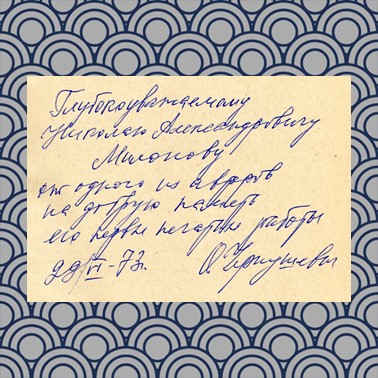 Глубокоуважаемому
Николаю Александровичу
Милонову
от одного из авторов
на добрую память
его первые печатные работы
29/VI-73г.